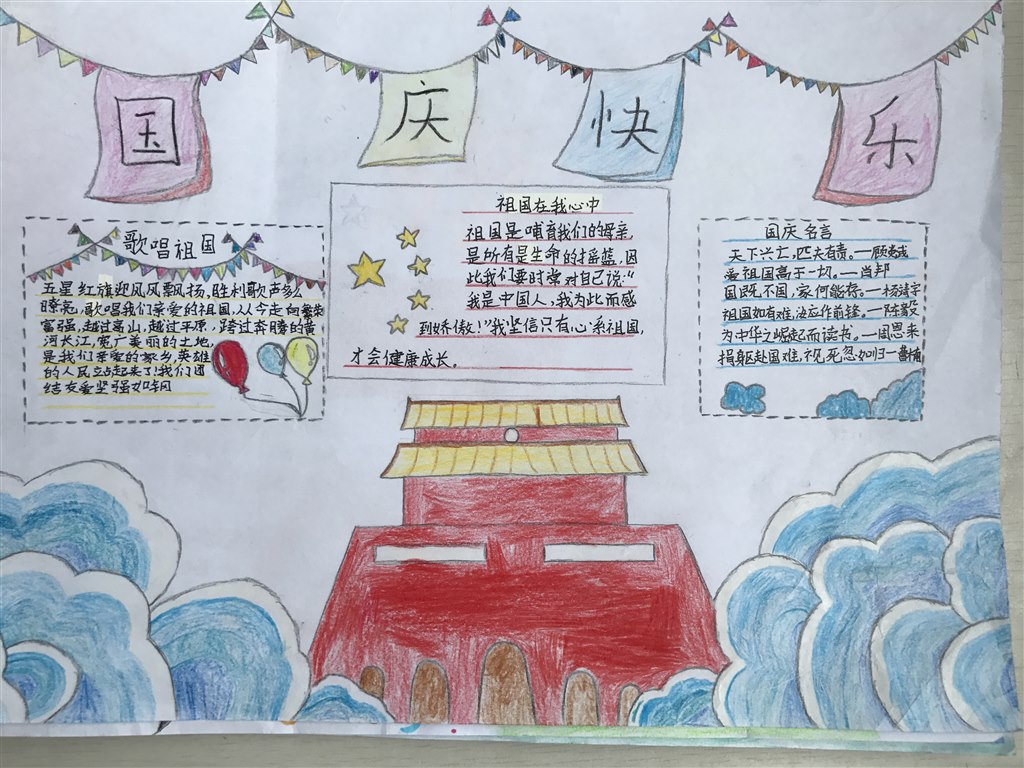 国庆快乐
歌唱祖国
五星红旗迎风风飘扬,胜利歌声多么
瞭亮,歌唱我们亲爱的祖国,从今走向繁荣
富强,越过高山,越过平原,跨过奔腾的黄
河长江,宽广美丽的土地,
是我们亲爱的家乡,英雄
的人民站起来了!我们团
结友爱坚强如钢
祖国在我心中
祖国是哺育我们的母亲,
是所有是生命的摇篮,因
此我们要时常对自己说:“
我是中国人,我为此而感
到娇傲!”我坚信只有心系祖国,
才会健康成长。
国庆名言
天下兴亡,匹夫有责。—顾炎武
爱祖国高于一切。—肖邦
国既不国,家何能存。—杨靖宇
祖国如有难,汝应作前锋。—陈毅
为中华之崛起而读书。—周恩来
捐躯赴国难,视死忽如归—曹植